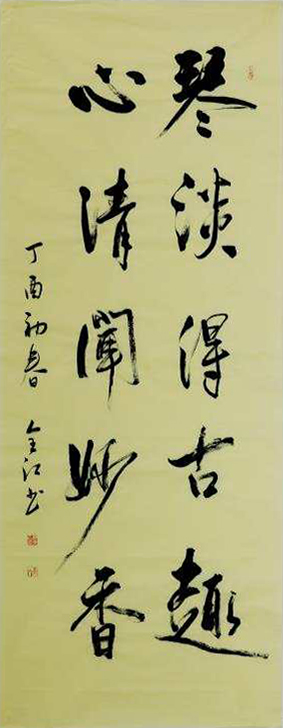 琴淡得古趣
心清闻妙香
丁酉初春 金江书